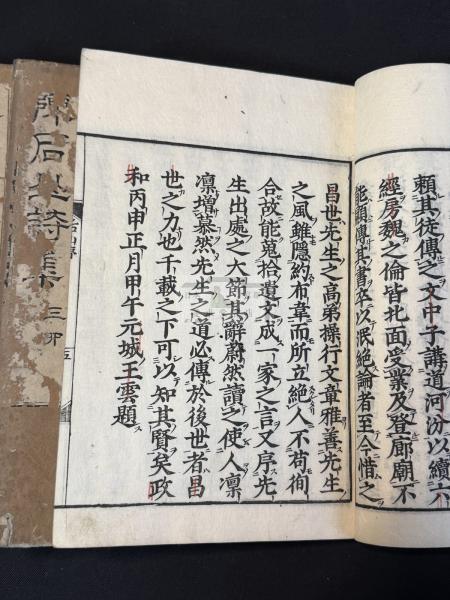 賴其徒傳之文中子講道河汾以續六
經房魏之倫皆北面受業及登廊廟不
能顯傳其書卒以泯絶論者至今惜之
昌世先生之高弟操行文章雅善先生
之風雖隱約布韋而所立絶人不苟徇
合故能蒐拾遺文成一家之言又序先
生出處之大節其辭蔚然讀之使人凛
凛增慕然先生之道必傳於後世者昌
世之力也千載之下可以知其賢矣政
和丙申正月甲午元城王雲題
后山詩集 三